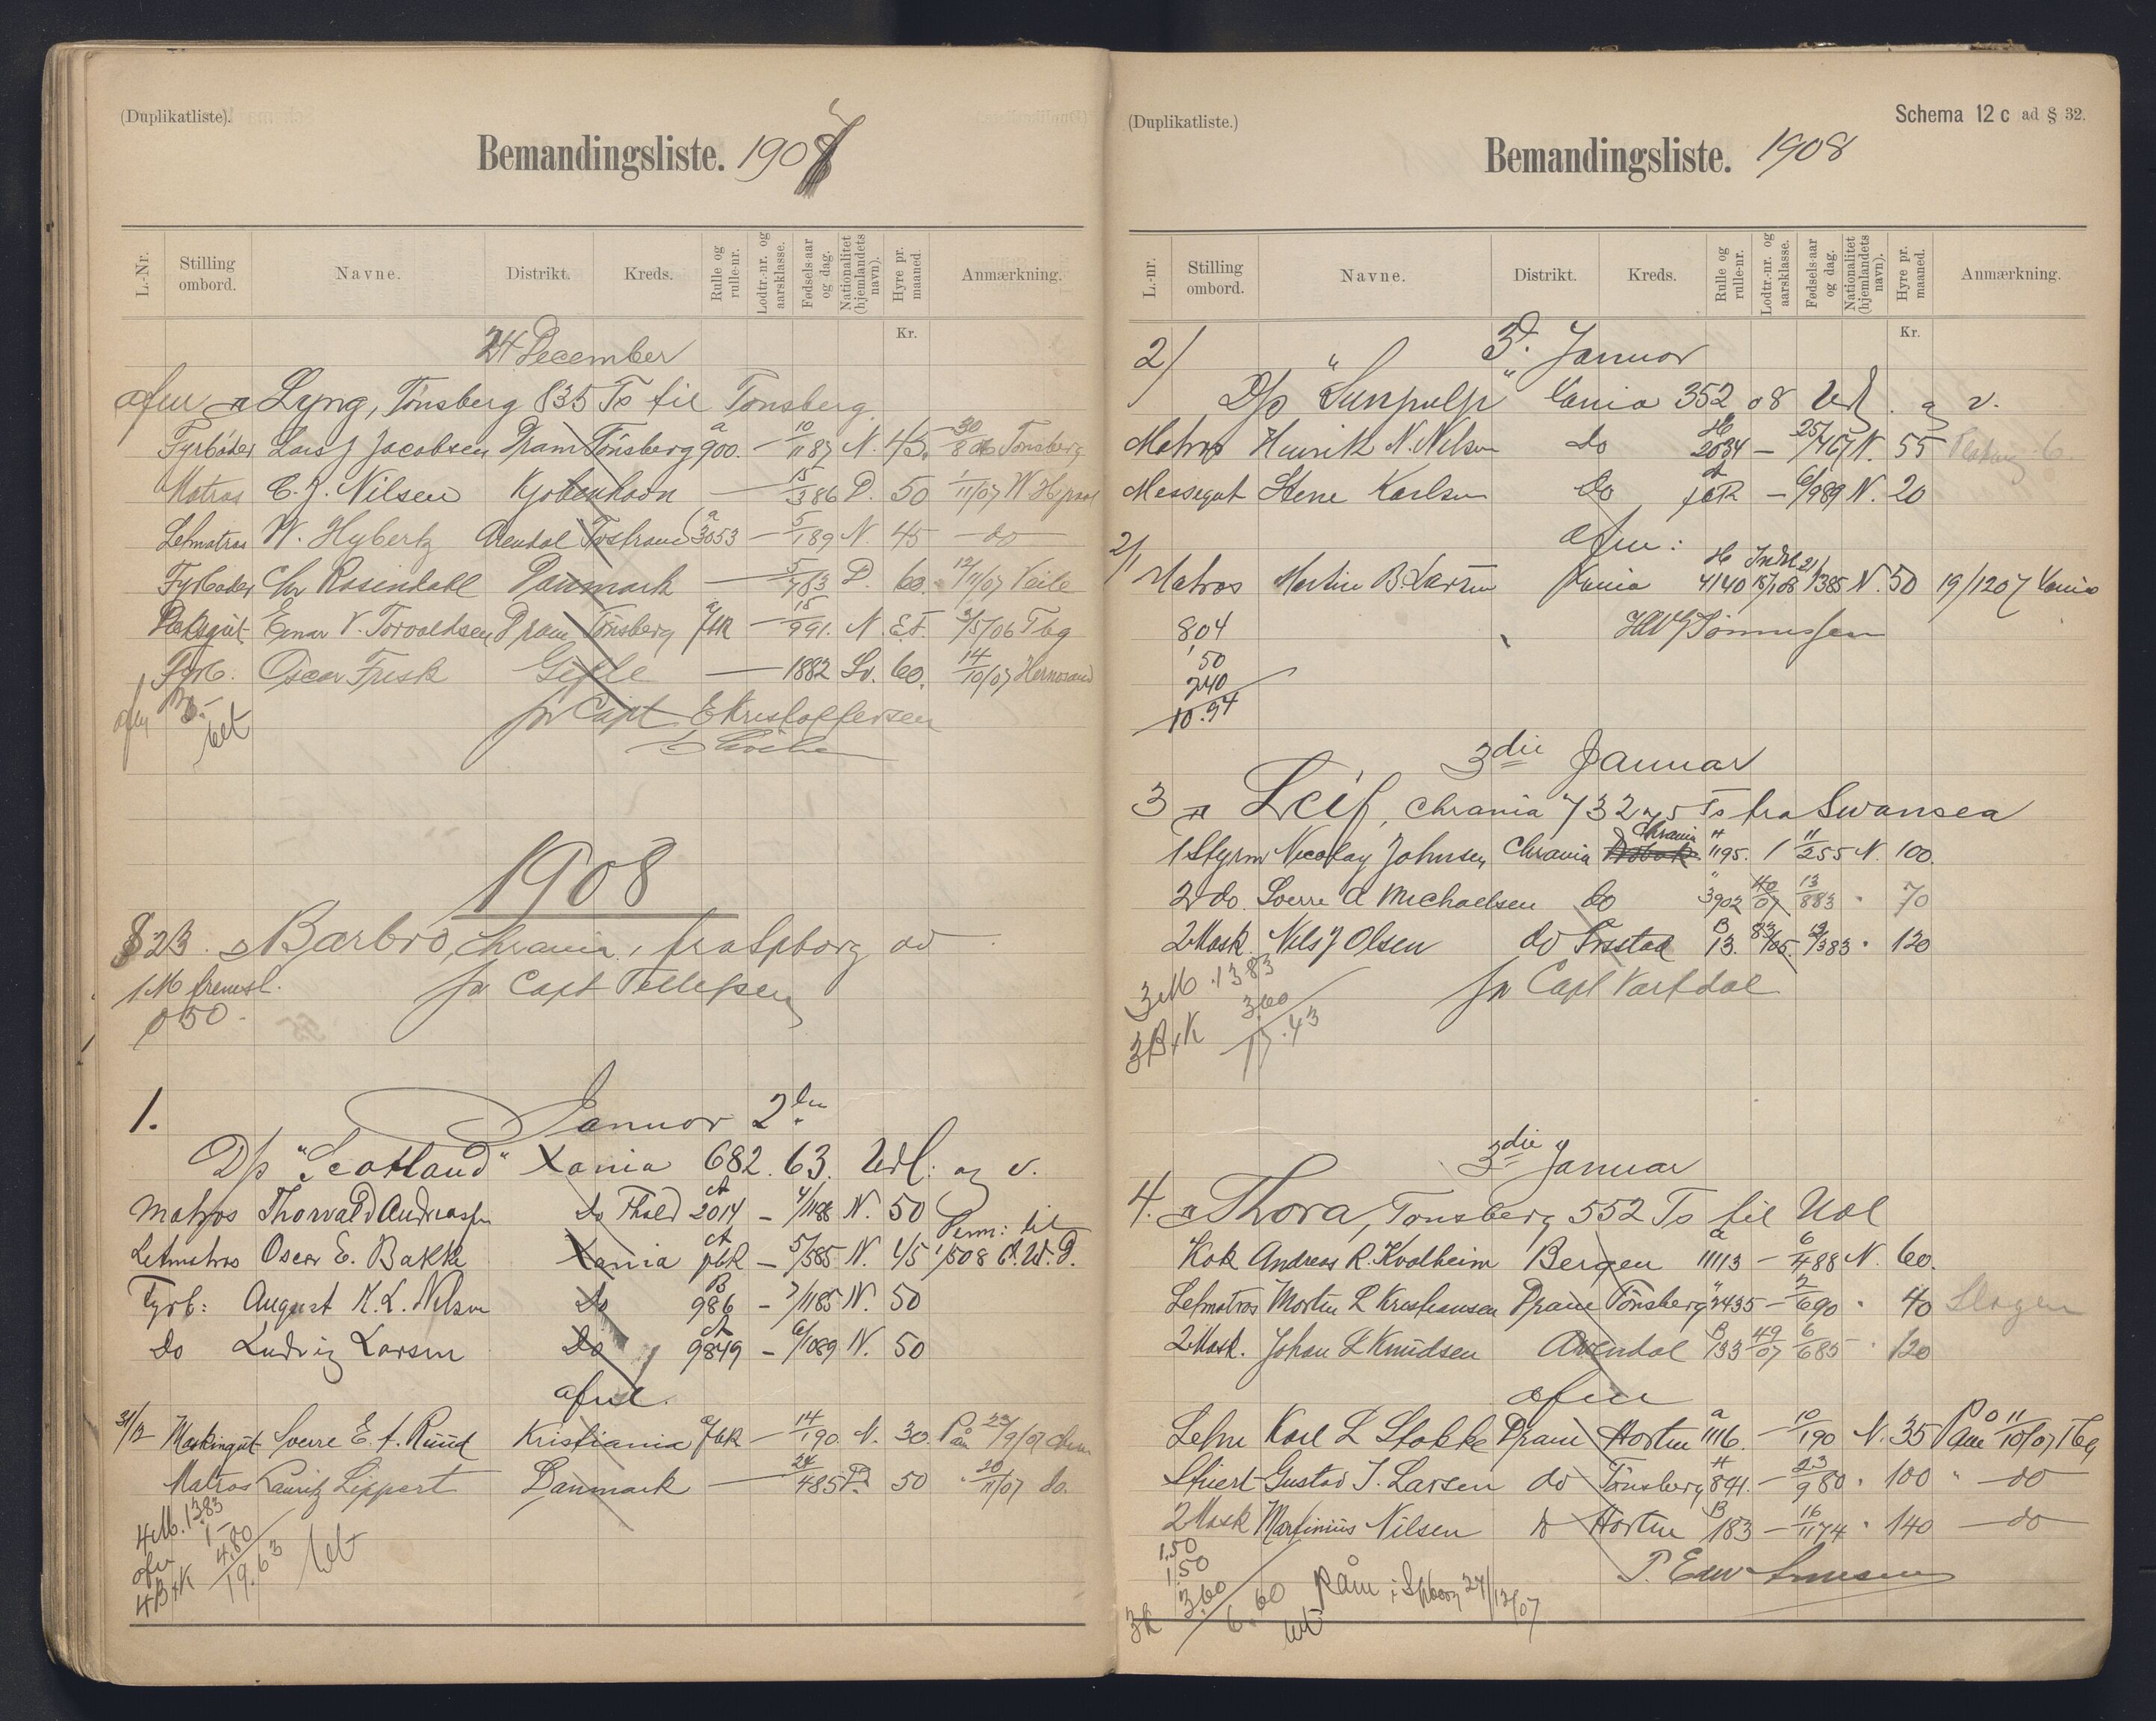 (Duplikatliste).
Bemandingsliste. 1907
L.-Nr.
Stilling ombord.
Navne.
Distrikt.
Kreds.
Rulle og rulle-nr.
Lodtr.-nr. og aarsklasse.
Fødsels-aar og dag.
Nationalitet (hjemlandets navn).
Hyre pr. maaned.
Anmærkning.
Kr.
24 December
afm Lyng, Tønsberg 835 Ts til Tønsberg
Fyrbøder Lars J Jacobsen Dram Tønsberg a 900. — 10/11 87 N. 45. 30/8 06 Tønsberg
Matros C. J. Nilsen Kjøbenhavn — 15/3 86 D. 50 1/11/07
Letmatros W. Hybertz Arendal a 3053 — 5/1 89 N. 45 — do —
Fyrbøder Chr Rosendahl Danmark — 5/7 83 D. 60. 12/11/07 Veile
Dæksgut Einar V. Torvaldsen Dram Tønsberg a fbR — 15/9 91. N. 2/5/06 Tbg
Fyrb. Oscar Frisk Gefle — 1882 Sv. 60. 14/10/07 Hernosand
afm 3.-
bet
pr Capt E Kristoffersen
1908
§ 23. Barbro, Chrania, fra Spborg
1 M fremst. pr Capt Tellefsen
0 50.
1. Januar 2den
D/s "Scotland" Xania 682.63. Udl: og v.
Matros Thorvald Andreassen do Fhald A 2014 — 4/11 86 N. 50
Letmatros Oscar E. Bakke Xania A fbR — 5/5 85 N. 45
Fyrb: August K. L. Nilsen do B 986 — 7/11 85 N. 50
do Ludvig Larsen do A 9849 — 6/10 89 N. 50
afm.
31/12 Maskingut Sverre E. A. Ruud Kristiania a fbR — 14/1 90. N. 30. Paam 23/9/07 Chra
Matros Lauritz Lippert Danmark — 24/4 85 D. 50 20/11/07 do.
4 M. 13.83
afm 1 -
4 B+K 4.80
19.63
bet
(Duplikatliste.)
Schema 12 c ad § 32.
Bemandingsliste. 1908
L.-nr.
Stilling ombord.
Navne.
Distrikt.
Kreds.
Rulle og rulle-nr.
Lodtr.-nr. og aarsklasse.
Fødsels-aar og dag.
Nationalitet (hjemlandets navn).
Hyre pr. maaned.
Anmærkning.
Kr.
2/ 3d. Januar
D/s "Sunpulp" Xania 352.08 Udl. og v.
Matros Henrik N. Nilsen do H 2034 — 25/4 67 N. 55
Messegut Stene Karlsen do A fbR — 6/9 89 N. 20
afm:
2/1 Matros Martin B. Larsen Xania H 4140 21/3 85 N. 50 19/12 07 Xania
8,04
50
2.40
10.94
3die Januar
3 Leif, Chrania 732.75 Ts fra Swansea
1 Styrm Nicolay Johnsen Chrania Chrania H 1195. 1 11/2 55 N. 100.
2 do. Sverre A Michaelsen do " 3902 40/07 13/8 83 " 70
2 Mask. Nils J Olsen do Frstad B 13. 83/05. 12/3 83 " 120
3 M. 13 83
3 B+K 3.60
17.43
pr Capt Vartdal
3die Januar
4. Thora, Tønsberg 552 Ts til Udl
Kok Andreas R. Kvalheim Bergen a 11113 — 6/4 88 N. 60.
Letmatros Morten L Kristiansen Dram Tønsberg " 2435 — 2/6 90 " 40 Slagen
2 Mask. Johan L Knudsen Arendal B 133 49/07 6/6 85 " 120
afm
Letm Karl L Stokke Dram Horten a 1116. — 10/1 90 N. 35 Paam 11/10/07 Tbg
Stuert Gustav J. Larsen do Tønsberg H 841. — 23/9 80 " 100 " — do
2 Mask Martinius Nilsen do Horten B 183 — 16/11 74 " 140 — do
1.50
1.50
3 K 3.60
6.60
bet
Påm i Spborg 27/12/07